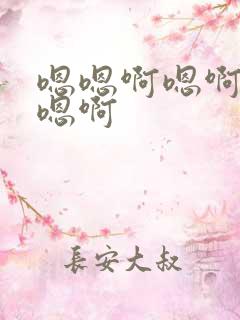 嗯嗯啊嗯啊
嗯啊
長安大叔